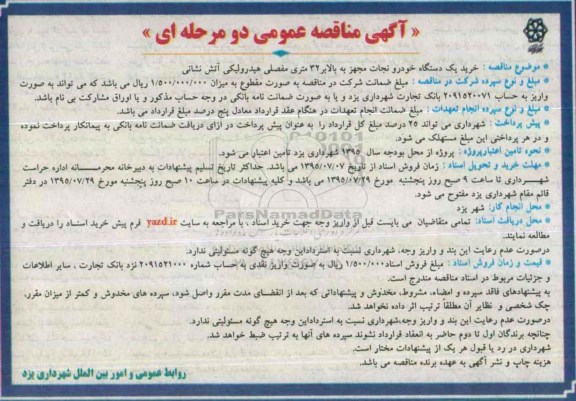 « آگهی مناقصه عمومی دو مرحله ای »
موضوع مناقصه : خرید یک دستگاه خودرو نجات مجهز به بالابر ۳۲ متری مفصلی هیدرولیکی آتش نشانی
مبلغ و نوع سپرده شرکت در مناقصه : مبلغ ضمانت شرکت در مناقصه به صورت مقطوع به میزان ۱/۵۰۰/۰۰۰/۰۰۰ ریال می باشد که می تواند به صورت
واریز به حساب ۲۰۹۱۵۲۰۰۷۱ بانک تجارت شهرداری یزد و یا به صورت ضمانت نامه بانکی در وجه حساب مذکور و یا اوراق مشارکت بی نام باشد.
مبلغ و نوع سپرده انجام تعهدات : مبلغ ضمانت انجام تعهدات در هنگام عقد قرارداد معادل پنج درصد مبلغ قرارداد می باشد.
پیش پرداخت : شهرداری می تواند ۲۵ درصد مبلغ کل قرارداد را به عنوان پیش پرداخت در ازای دریافت ضمانت نامه بانکی به پیمانکار پرداخت نموده
و در هر پرداختی این مبلغ مستهلک می شود.
نحوه تامین اعتبار پروژه : پروژه از محل بودجه سال ۱۳۹۵ شهرداری یزد تامین اعتبار می شود.
مهلت خرید و تحویل اسناد : زمان فروش اسناد از تاریخ ۱۳۹۵/۰۷/۰۷ می باشد. حداکثر تاریخ تسلیم پیشنهادات به دبیرخانه محرمانه اداره حراست
شهرداری تا ساعت ۹ صبح روز پنجشنبه مورخ ۱۳۹۵/۰۷/۲۹ می باشد و کلیه پیشنهادات در ساعت ۱۰ صبح روز پنجشنبه مورخ ۱۳۹۵/۰۷/۲۹ در دفتر
قائم مقام شهرداری یزد مفتوح می شود.
محل انجام کار: شهر یزد
محل دریافت اسناد: تمامی متقاضیان می بایست قبل از واریز وجه جهت خرید اسناد ، با مراجعه به سایت yazd.ir فرم پیش خرید اسناد را دریافت و
مطالعه نمایند.
درصورت عدم رعایت این بند و واریز وجه، شهرداری نسبت به استرداد این وجه هیچ گونه مسئولیتی ندارد.
قیمت و زمان فروش اسناد : مبلغ فروش اسناد ۱/۵۰۰/۰۰۰ ریال به صورت واریز نقدی به حساب شماره ۲۰۹۱۵۲۱۰۰۰ نزد بانک تجارت ، سایر اطلاعات
و جزئیات مربوط در اسناد مناقصه مندرج است.
به پیشنهادهای فاقد سپرده و امضاء، مشروط، مخدوش و پیشنهاداتی که بعد از انقضای مدت مقرر واصل شود، سپرده های مخدوش و کمتر از میزان مقرر،
چک شخصی و نظایر آن مطلقاً ترتیب اثر داده نخواهد شد.
درصورت عدم رعایت این بند و واریز وجه، شهرداری نسبت به استرداد این وجه هیچ گونه مسئولیتی ندارد.
چنانچه برندگان اول تا دوم حاضر به انعقاد قرارداد نشوند سپرده های آنها به ترتیب ضبط خواهد شد.
شهرداری در رد یا قبول هر یک از پیشنهادات مختار است.
هزینه چاپ و نشر آگهی به عهده برنده مناقصه می باشد.
روابط عمومی و امور بین الملل شهرداری یزد
ParsNamadData